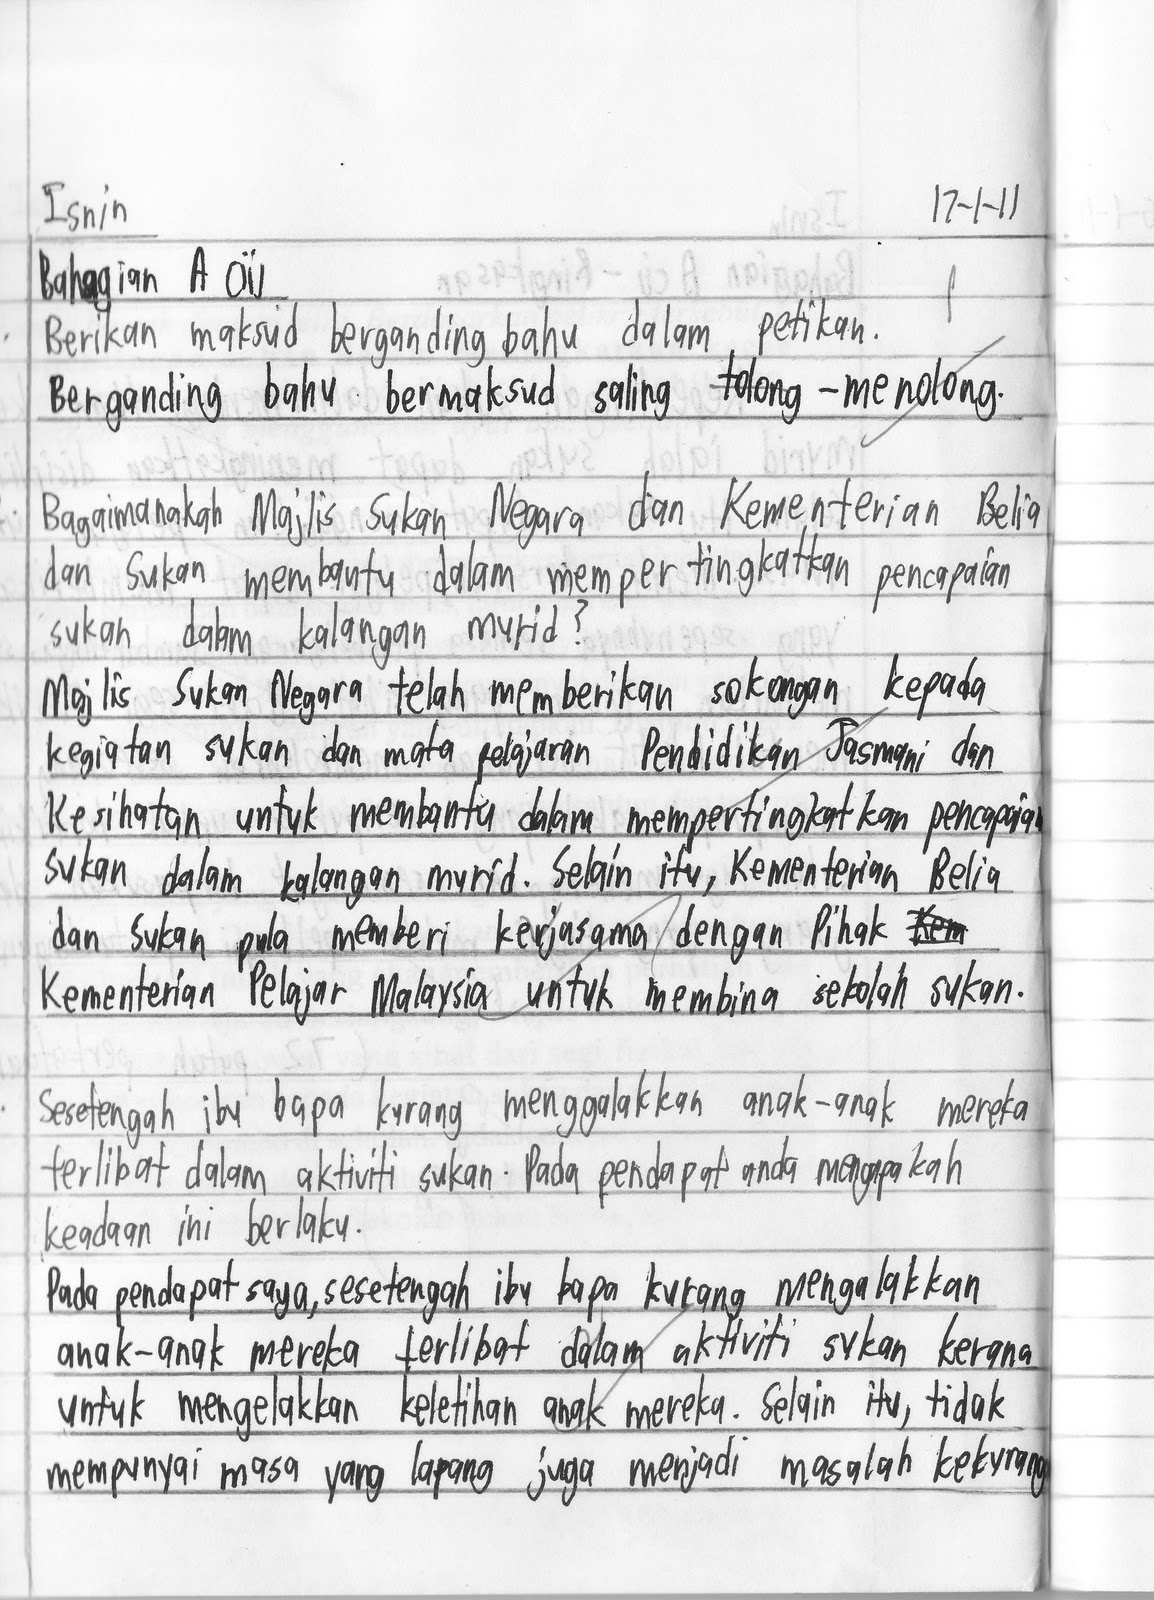 Isnin 17-1-11
Bahagian A (ii)
Berikan maksud berganding bahu dalam petikan.
Berganding bahu bermaksud saling tolong-menolong.
Bagaimanakah Majlis Sukan Negara dan Kementerian Belia
dan Sukan membantu dalam mempertingkatkan pencapaian
sukan dalam kalangan murid?
Majlis Sukan Negara telah memberikan sokongan kepada
kegiatan sukan dan mata pelajaran Pendidikan Jasmani dan
Kesihatan untuk membantu dalam mempertingkatkan pencapaian
sukan dalam kalangan murid. Selain itu, Kementerian Belia
dan Sukan pula memberi kerjasama dengan Pihak Kem
Kementerian Pelajar Malaysia untuk membina sekolah sukan.
Sesetengah ibu bapa kurang menggalakkan anak-anak mereka
terlibat dalam aktiviti sukan. Pada pendapat anda mengapakah
keadaan ini berlaku.
Pada pendapat saya, sesetengah ibu bapa kurang mengalakkan
anak-anak mereka terlibat dalam aktiviti sukan kerana
untuk mengelakkan keletihan anak mereka. Selain itu, tidak
mempunyai masa yang lapang juga menjadi masalah kekurang